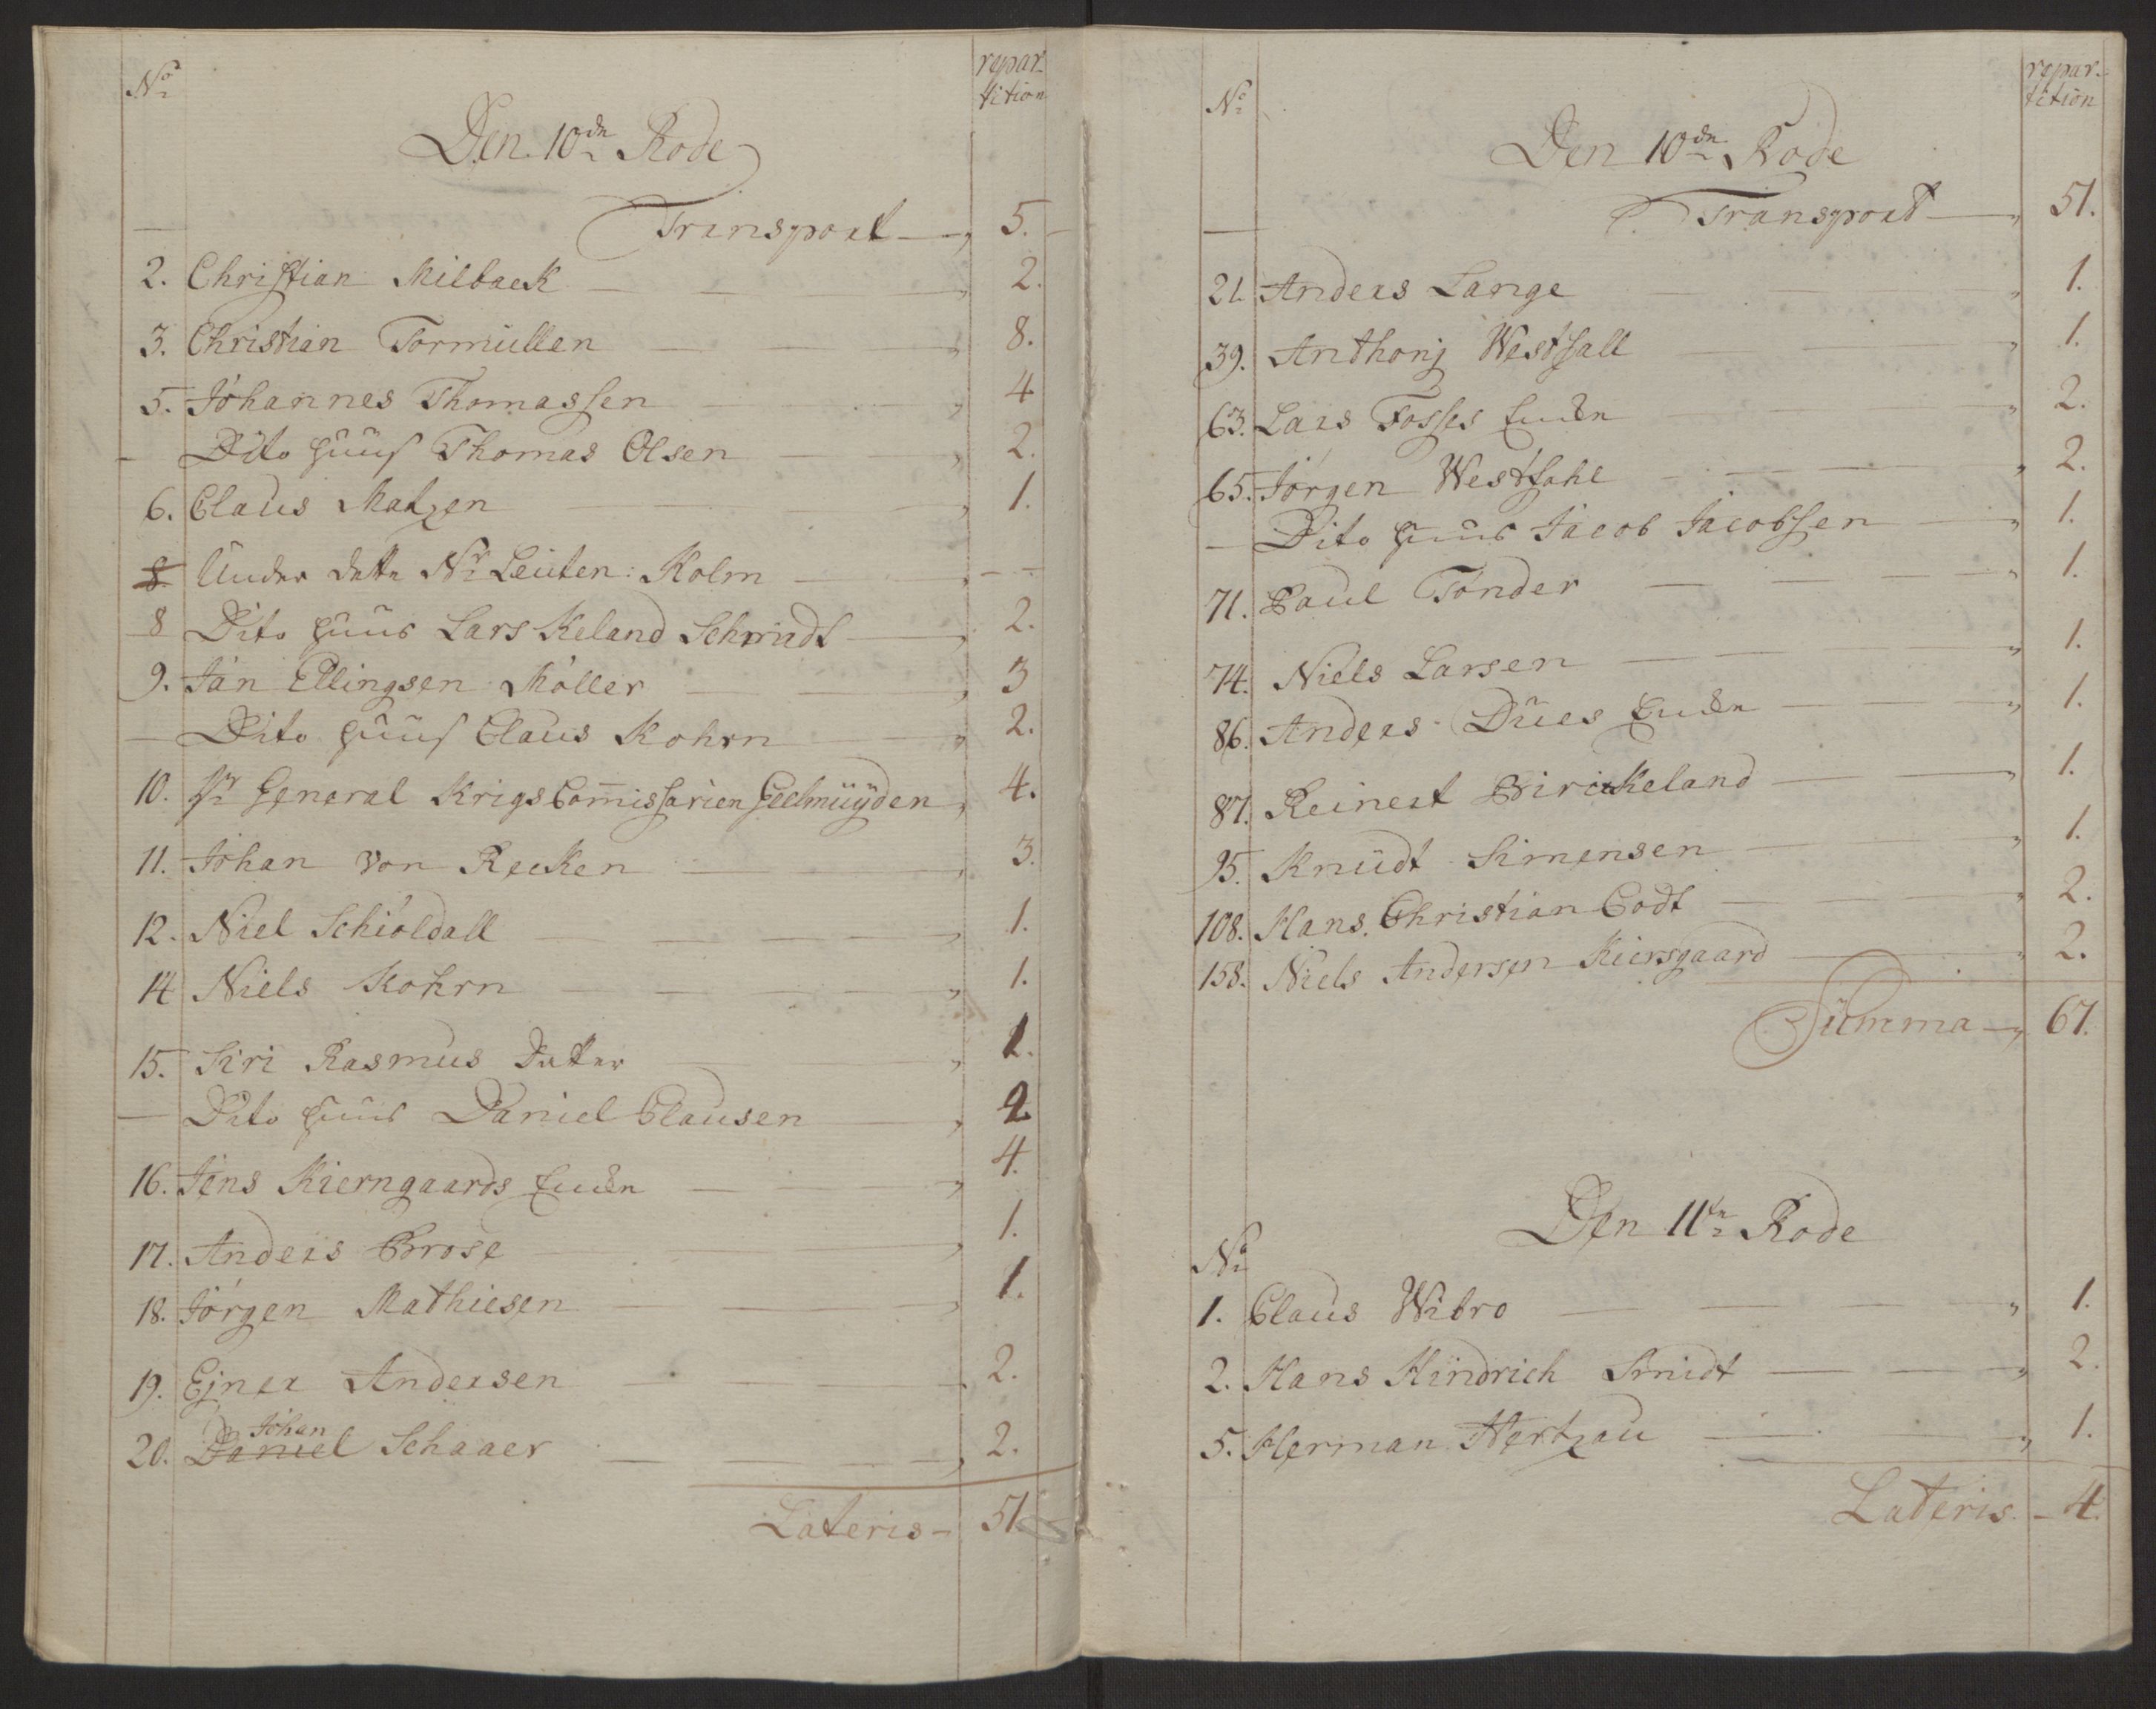 No repar-
tition
Den 10de Rode
Transport 5.
2. Christian Milbaek 2.
3. Christian Tormüllen 8.
5. Johannes Thomassen 4
- Dito huus Thomas Olsen 2.
6. Claus Matzen 1.
8 Under dette Nr Leuten: Kolm - -
8 Dito huus Lars Keland Schmidt 2.
9. Jan Ellingsen Möller 3
- Dito huus Claus Kohrn 2.
10. Hr General KrigsCommissarien Geelmüyden 4.
11. Johan von Recken 3.
12. Niel Schiöldall 1.
14 Niels Kohrn 1.
15. Siri Rasmus Datter 1.
- Dito huus Daniel Clausen 2
16. Jens Kierngaards Encken 4.
17. Anders Brose 1.
18. Jörgen Mathiesen 1.
19. Ejner Andersen 2.
Johan
20. Daniel Schaaer 2.
Lateris 51
No repar-
tition
Den 10de Rode
Transport 51.
21. Anders Lange 1.
39. Anthonj Westfall 1.
63. Lars Fosses Encken 2.
65. Jörgen Westfahl 2.
- Dito huus Jacob Jacobsen 1.
71. Paul Tönder 1.
74. Niels Larsen 1.
86. Anders Dues Encken 1.
87. Reinert Birckeland 1.
95. Knudt Simensen 1.
108. Hans Christian Codt 2.
158. Niels Andersen Kiersgaard 2.
Summa 67.
Den 11te Rode
No
1. Claus Wibro 1.
2. Hans Hindrich Smidt 2.
5. Herman Hertzau 1.
Lateris - 4.